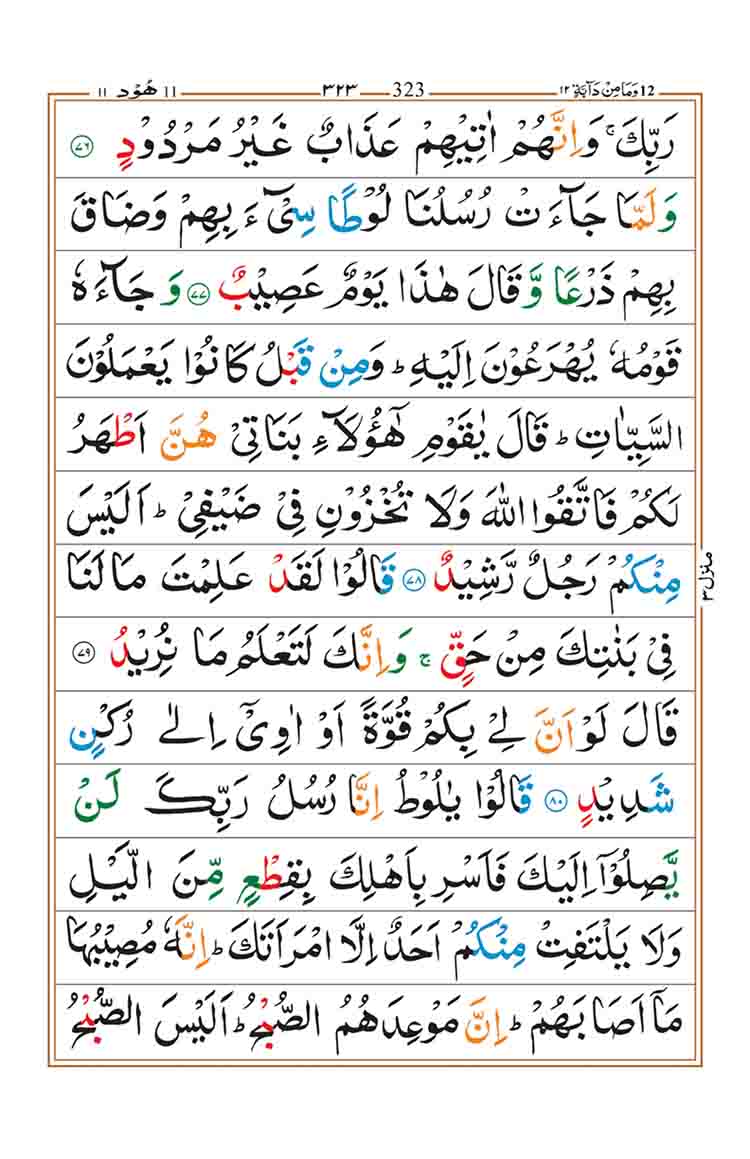 12 وَمَا مِنْ دَآبَّةٍ ١٢ 323 ٣٢٣ 11 هُوْد ١١
رَبِّكَ ۚ وَاِنَّهُمْ اٰتِيْهِمْ عَذَابٌ غَيْرُ مَرْدُوْدٍ ﴿٧٦﴾
وَلَمَّا جَآءَتْ رُسُلُنَا لُوْطًا سِیْٓءَ بِهِمْ وَضَاقَ
بِهِمْ ذَرْعًا وَّقَالَ هٰذَا يَوْمٌ عَصِيْبٌ ﴿٧٧﴾ وَجَآءَهٗ
قَوْمُهٗ يُهْرَعُوْنَ اِلَيْهِ ؕ وَمِنْ قَبْلُ كَانُوْا يَعْمَلُوْنَ
السَّيِّاٰتِ ؕ قَالَ يٰقَوْمِ هٰٓؤُلَآءِ بَنَاتِیْ هُنَّ اَطْهَرُ
لَكُمْ فَاتَّقُوا اللّٰهَ وَلَا تُخْزُوْنِ فِیْ ضَيْفِیْ ؕ اَلَيْسَ
مِنْكُمْ رَجُلٌ رَّشِيْدٌ ﴿٧٨﴾ قَالُوْا لَقَدْ عَلِمْتَ مَا لَنَا
فِیْ بَنٰتِكَ مِنْ حَقٍّ ۚ وَاِنَّكَ لَتَعْلَمُ مَا نُرِيْدُ ﴿٧٩﴾
قَالَ لَوْ اَنَّ لِیْ بِكُمْ قُوَّةً اَوْ اٰوِیْۤ اِلٰى رُكْنٍ
شَدِيْدٍ ﴿٨٠﴾ قَالُوْا يٰلُوْطُ اِنَّا رُسُلُ رَبِّكَ لَنْ
يَّصِلُوْۤا اِلَيْكَ فَاَسْرِ بِاَهْلِكَ بِقِطْعٍ مِّنَ الَّيْلِ
وَلَا يَلْتَفِتْ مِنْكُمْ اَحَدٌ اِلَّا امْرَاَتَكَ ؕ اِنَّهٗ مُصِيْبُهَا
مَاۤ اَصَابَهُمْ ؕ اِنَّ مَوْعِدَهُمُ الصُّبْحُ ؕ اَلَيْسَ الصُّبْحُ
منزل ٣